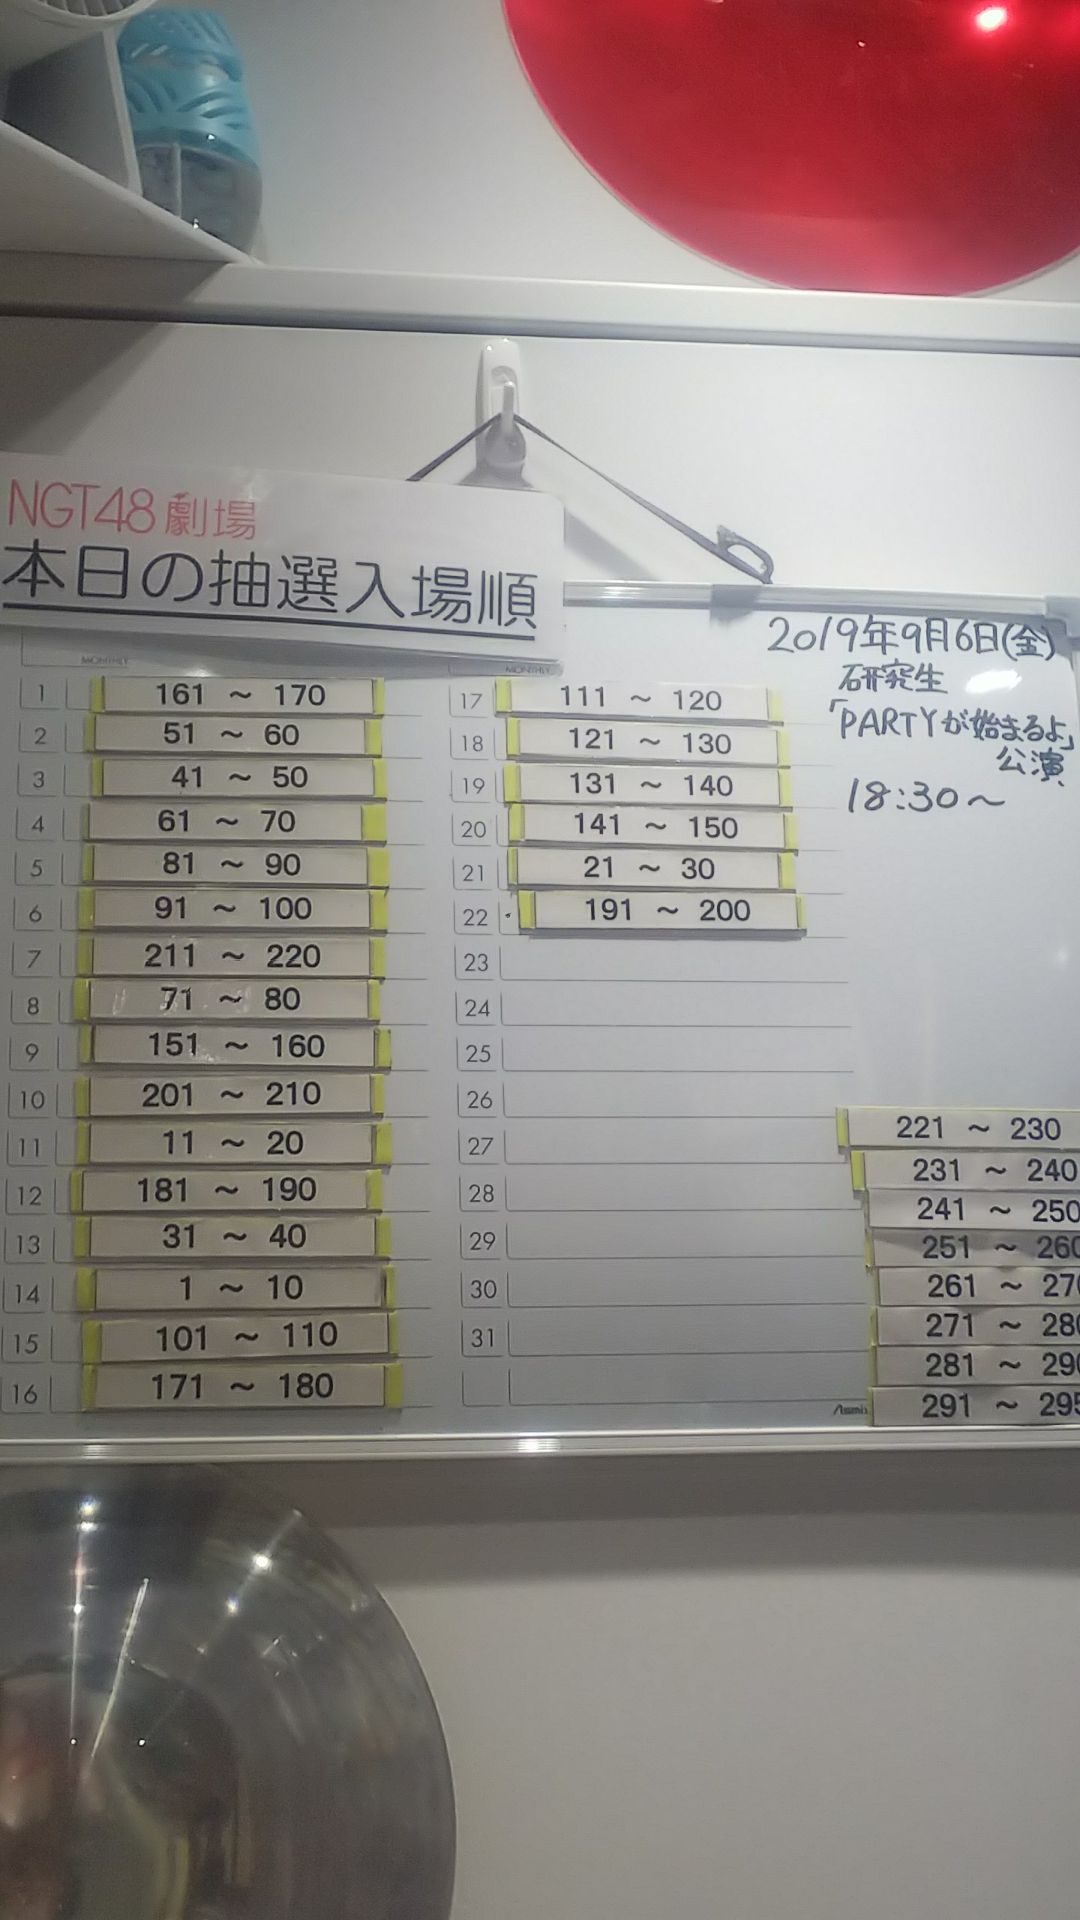 NGT48劇場
本日の抽選入場順
MONTHLY
1 161 ～ 170
2 51 ～ 60
3 41 ～ 50
4 61 ～ 70
5 81 ～ 90
6 91 ～ 100
7 211 ～ 220
8 71 ～ 80
9 151 ～ 160
10 201 ～ 210
11 11 ～ 20
12 181 ～ 190
13 31 ～ 40
14 1 ～ 10
15 101 ～ 110
16 171 ～ 180
MONTHLY
17 111 ～ 120
18 121 ～ 130
19 131 ～ 140
20 141 ～ 150
21 21 ～ 30
22 191 ～ 200
23
24
25
26
27
28
29
30
31
2019年9月6日(金)
研究生
「PARTYが始まるよ」
公演
18:30～
221 ～ 230
231 ～ 240
241 ～ 250
251 ～ 260
261 ～ 270
271 ～ 280
281 ～ 290
291 ～ 295
Asmix